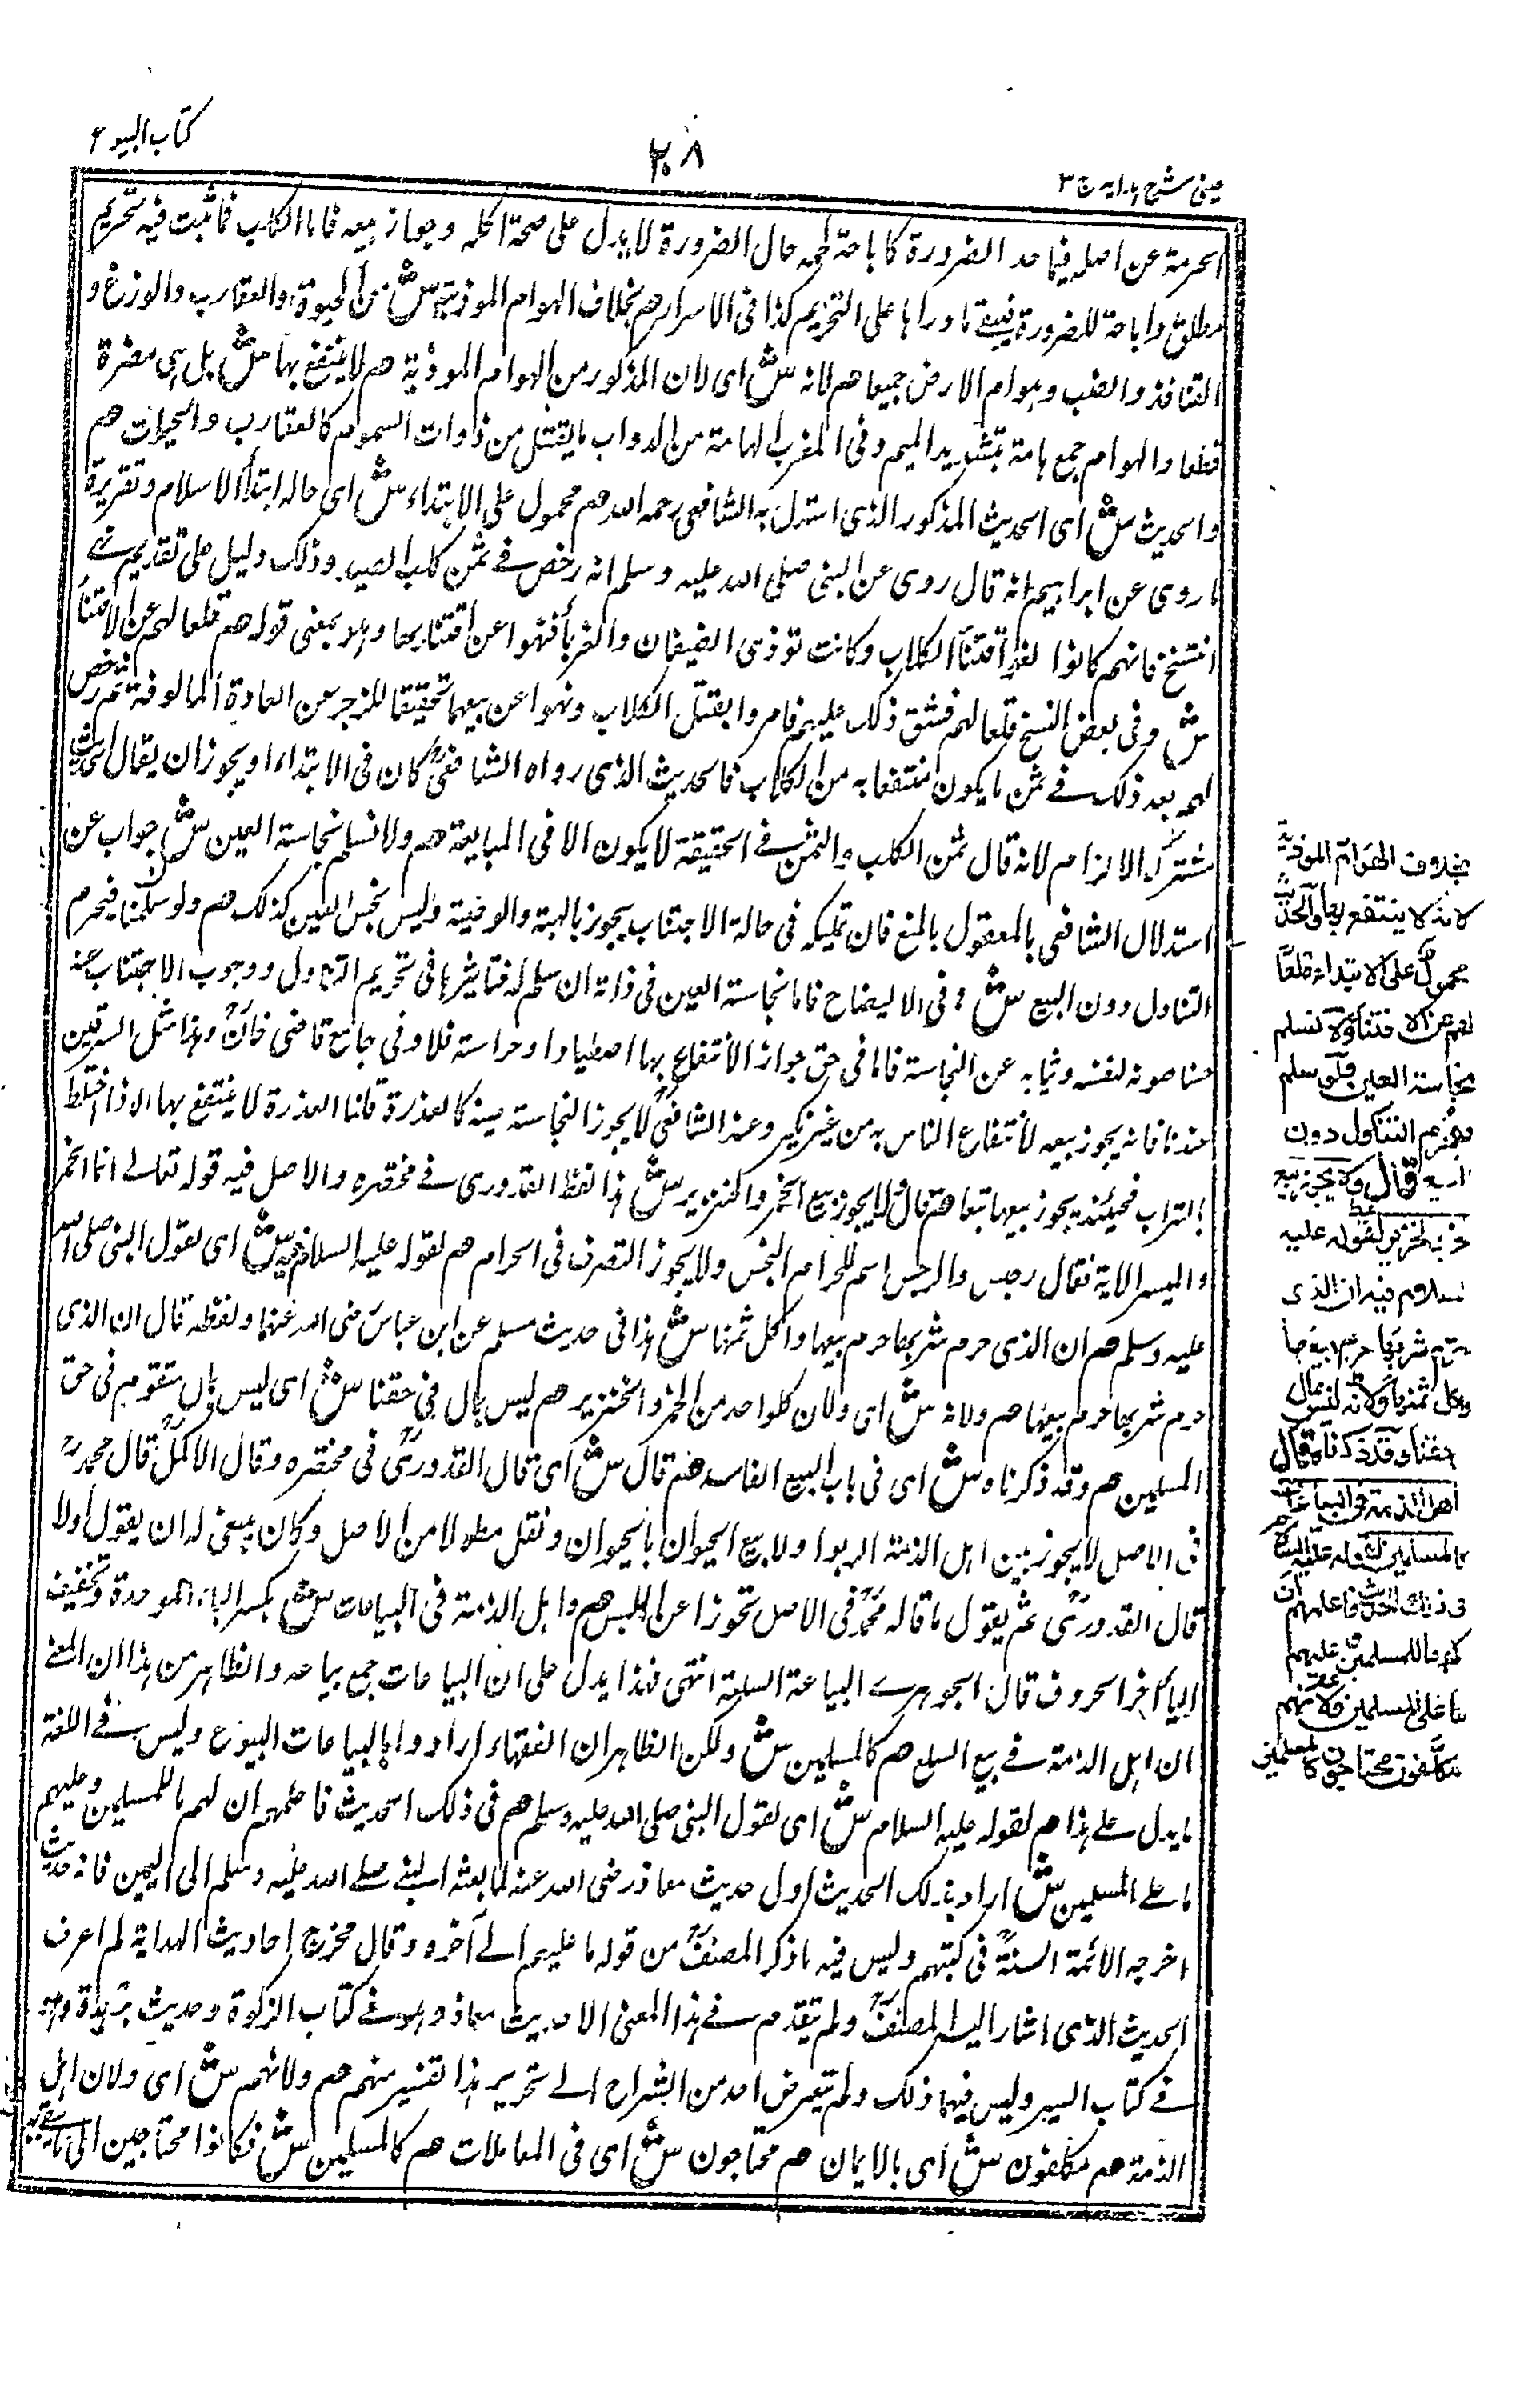 كتاب البيوع
٣٠٨
عينى شرح هدايه ج ٣
الحرمة عن اصله فيما حد الضرورة كاباحة لحمه حال الضرورة لا يدل على صحة اكله وجواز بيعه فاما الكلاب فما ثبت فيه تحريم
مطلق واباحة للضرورة فيبقى ما وراها على التحريم كذا فى الاسرار هم بخلاف الهوام الموذية ش من الحيوة والعقارب والوزغ و
القنافذ والضب وهوام الارض جميعا هم لانه ش اى لان المذكور من الهوام الموذية هم لا ينتفع بها ش بل هى مضرة
قطعا والهوام جمع هامة بتشديد الميم وفى المغرب الهامة من الدواب ما يقتل من ذوات السموم كالعقارب والحيات هم
والحديث ش اى الحديث المذكور الذى استدل به الشافعى رحمه الله هم محمول على الابتداء ش اى حالة ابتدأ الاسلام وتقريره
ما روى عن ابراهيم انه قال روى عن النبى صلى الله عليه وسلم انه رخص فى ثمن كلب الصيد وذلك دليل على تقديم نهى
انتسخ فانهم كانوا لغة اقتنأ الكلاب وكانت توذى الضيفان والغربأ فنهوا عن اقتنايها وهو بمعنى قوله هم قلعا لهم عن الاقتنأ
ش وفى بعض النسخ قلعا لهم فشق ذلك عليهم فامروا بقتل الكلاب ونهوا عن بيعها تحقيقا للزجر عن العادة المالوفة ثم رخص
لهم بعد ذلك فى ثمن ما يكون منتفعا به من الكلاب فالحديث الذى رواه الشافعى كان فى الابتداء او يجوز ان يقال الحديث
مشترك الالزام لانه قال ثمن الكلب والثمن فى الحقيقة لا يكون الا فى المبايعة هم ولا نسلم نجاسة العين ش جواب عن
استدلال الشافعى بالمعقول بالمنع فان تمليكه فى حالة الاجتناب يجوز بالهبة والوصية وليس نجس العين كذلك هم ولو سلمنا فيحرم
التناول دون البيع ش وفى الايضاح فاما نجاسة العين فى ذاته ان سلم له فتاثيرها فى تحريم التناول ووجوب الاجتناب عنه
صونه لنفسه وثيابه عن النجاسة فاما فى حق جواز الانتفاع بها اصطيادا وحراسة فلا وفى جامع قاضى خان وهذا مثل السرقين
عندنا فانه يجوز بيعه لانتفاع الناس به من غير نكير وعند الشافعى لا يجوز النجاسة عينه كالعذرة قلنا العذرة لا ينتفع بها الا اذا اختلط
بالتراب فحينئذ يجوز بيعها تبعا هم قال ولا يجوز بيع الخمر والخنزير ش هذا لفظ القدورى فى مختصره والاصل فيه قوله تعالى انما الخمر
والميسر الاية فقال رجس والرجس اسم للحرام النجس ولا يجوز التصرف فى الحرام هم لقوله عليه السلام فيه ش اى لقول النبى صلى الله
عليه وسلم هم ان الذى حرم شربها حرم بيعها واكل ثمنها ش هذا فى حديث مسلم عن ابن عباس رضى الله عنهما ولفظه قال ان الذى
حرم شربها حرم بيعها هم ولانه ش اى ولان كلواحد من الخمر والخنزير هم ليس بمال فى حقنا ش اى ليس بمال متقوم فى حق
المسلمين هم وقد ذكرناه ش اى فى باب البيع الفاسد هم قال ش اى قال القدورى فى مختصره وقال الاكمل قال محمد
فى الاصل لا يجوز بين اهل الذمة الربوا ولا بيع الحيوان بالحيوان ونقل مطولا من الاصل وكان ينبغى له ان يقول اولا
قال القدورى ثم يقول ما قاله محمد فى الاصل تحوزا عن اللبس هم واهل الذمة فى البياعات ش بكسر الباء الموحدة وتخفيف
اليأ آخر الحروف قال الجوهرى البياعة السلعة انتهى فهذا يدل على ان البياعات جمع بياعه والظاهر من هذا ان المعنى
ان اهل الذمة فى بيع السلع هم كالمسلمين ش ولكن الظاهر ان الفقهاء ارادوا بالبياعات البيوع وليس فى اللغة
ما يدل على هذا هم لقوله عليه السلام ش اى لقول النبى صلى الله عليه وسلم هم فى ذلك الحديث فاعلمهم ان لهم ما للمسلمين وعليهم
ما على المسلمين ش اراد بذلك الحديث اول حديث معاذ رضى الله عنه لما بعثه النبى صلى الله عليه وسلم الى اليمن فانه حديث
اخرجه الائمة الستة فى كتبهم وليس فيه ما ذكر المصنف من قوله ما عليهم الى آخره وقال مخرج احاديث الهداية لم اعرف
الحديث الذى اشار اليه المصنف ولم يتقدم فى هذا المعنى الا حديث معاذ وهو فى كتاب الزكوة وحديث بريدة وهو
فى كتاب السير وليس فيها ذلك ولم يتعرض احد من الشراح الى تحرير هذا تفسير منهم هم ولانهم ش اى ولان اهل
الذمة هم مكلفون ش اى بالايمان هم محتاجون ش اى فى المعاملات هم كالمسلمين ش فكانوا محتاجين الى
بخلاف الهوام الموذية
لانه لا ينتفع بها والحديث
محمول على الابتداء قلعا
لهم عن الاقتناء ولا نسلم
نجاسة العين فلو سلم
يحرم التناول دون
البيع قال ولا يجوز بيع
الخنزير لقوله عليه
السلام فيه ان الذى
حرم شربها حرم بيعها
واكل ثمنها ولانه ليس بمال
حقنا وقد ذكرناه قال
اهل الذمة فى البياعات
كالمسلمين لقوله عليه السلام
فى ذلك الحديث فاعلمهم ان
لهم ما للمسلمين وعليهم
ما على المسلمين ولانهم
مكلفون محتاجون كالمسلمين